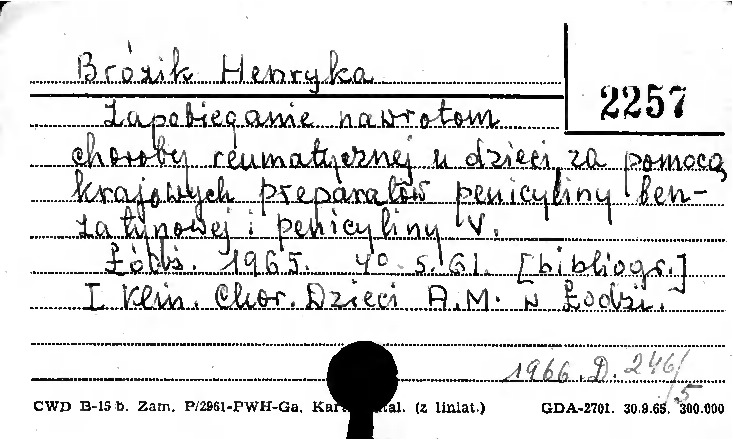 Brózik Henryka
2257
Zapobieganie nawrotom
choroby reumatycznej u dzieci za pomocą
krajowych preparatów penicyliny ben-
zatynowej i penicyliny V.
Łódź. 1965. 4° s. 61. [bibliogr.]
I Klin. Chor. Dzieci A.M. w Łodzi.
1966. D. 246/5
CWD B-15 b. Zam. P/2961-PWH-Ga. Kar al. (z liniat.) GDA-2701. 30.9.65. 300.000